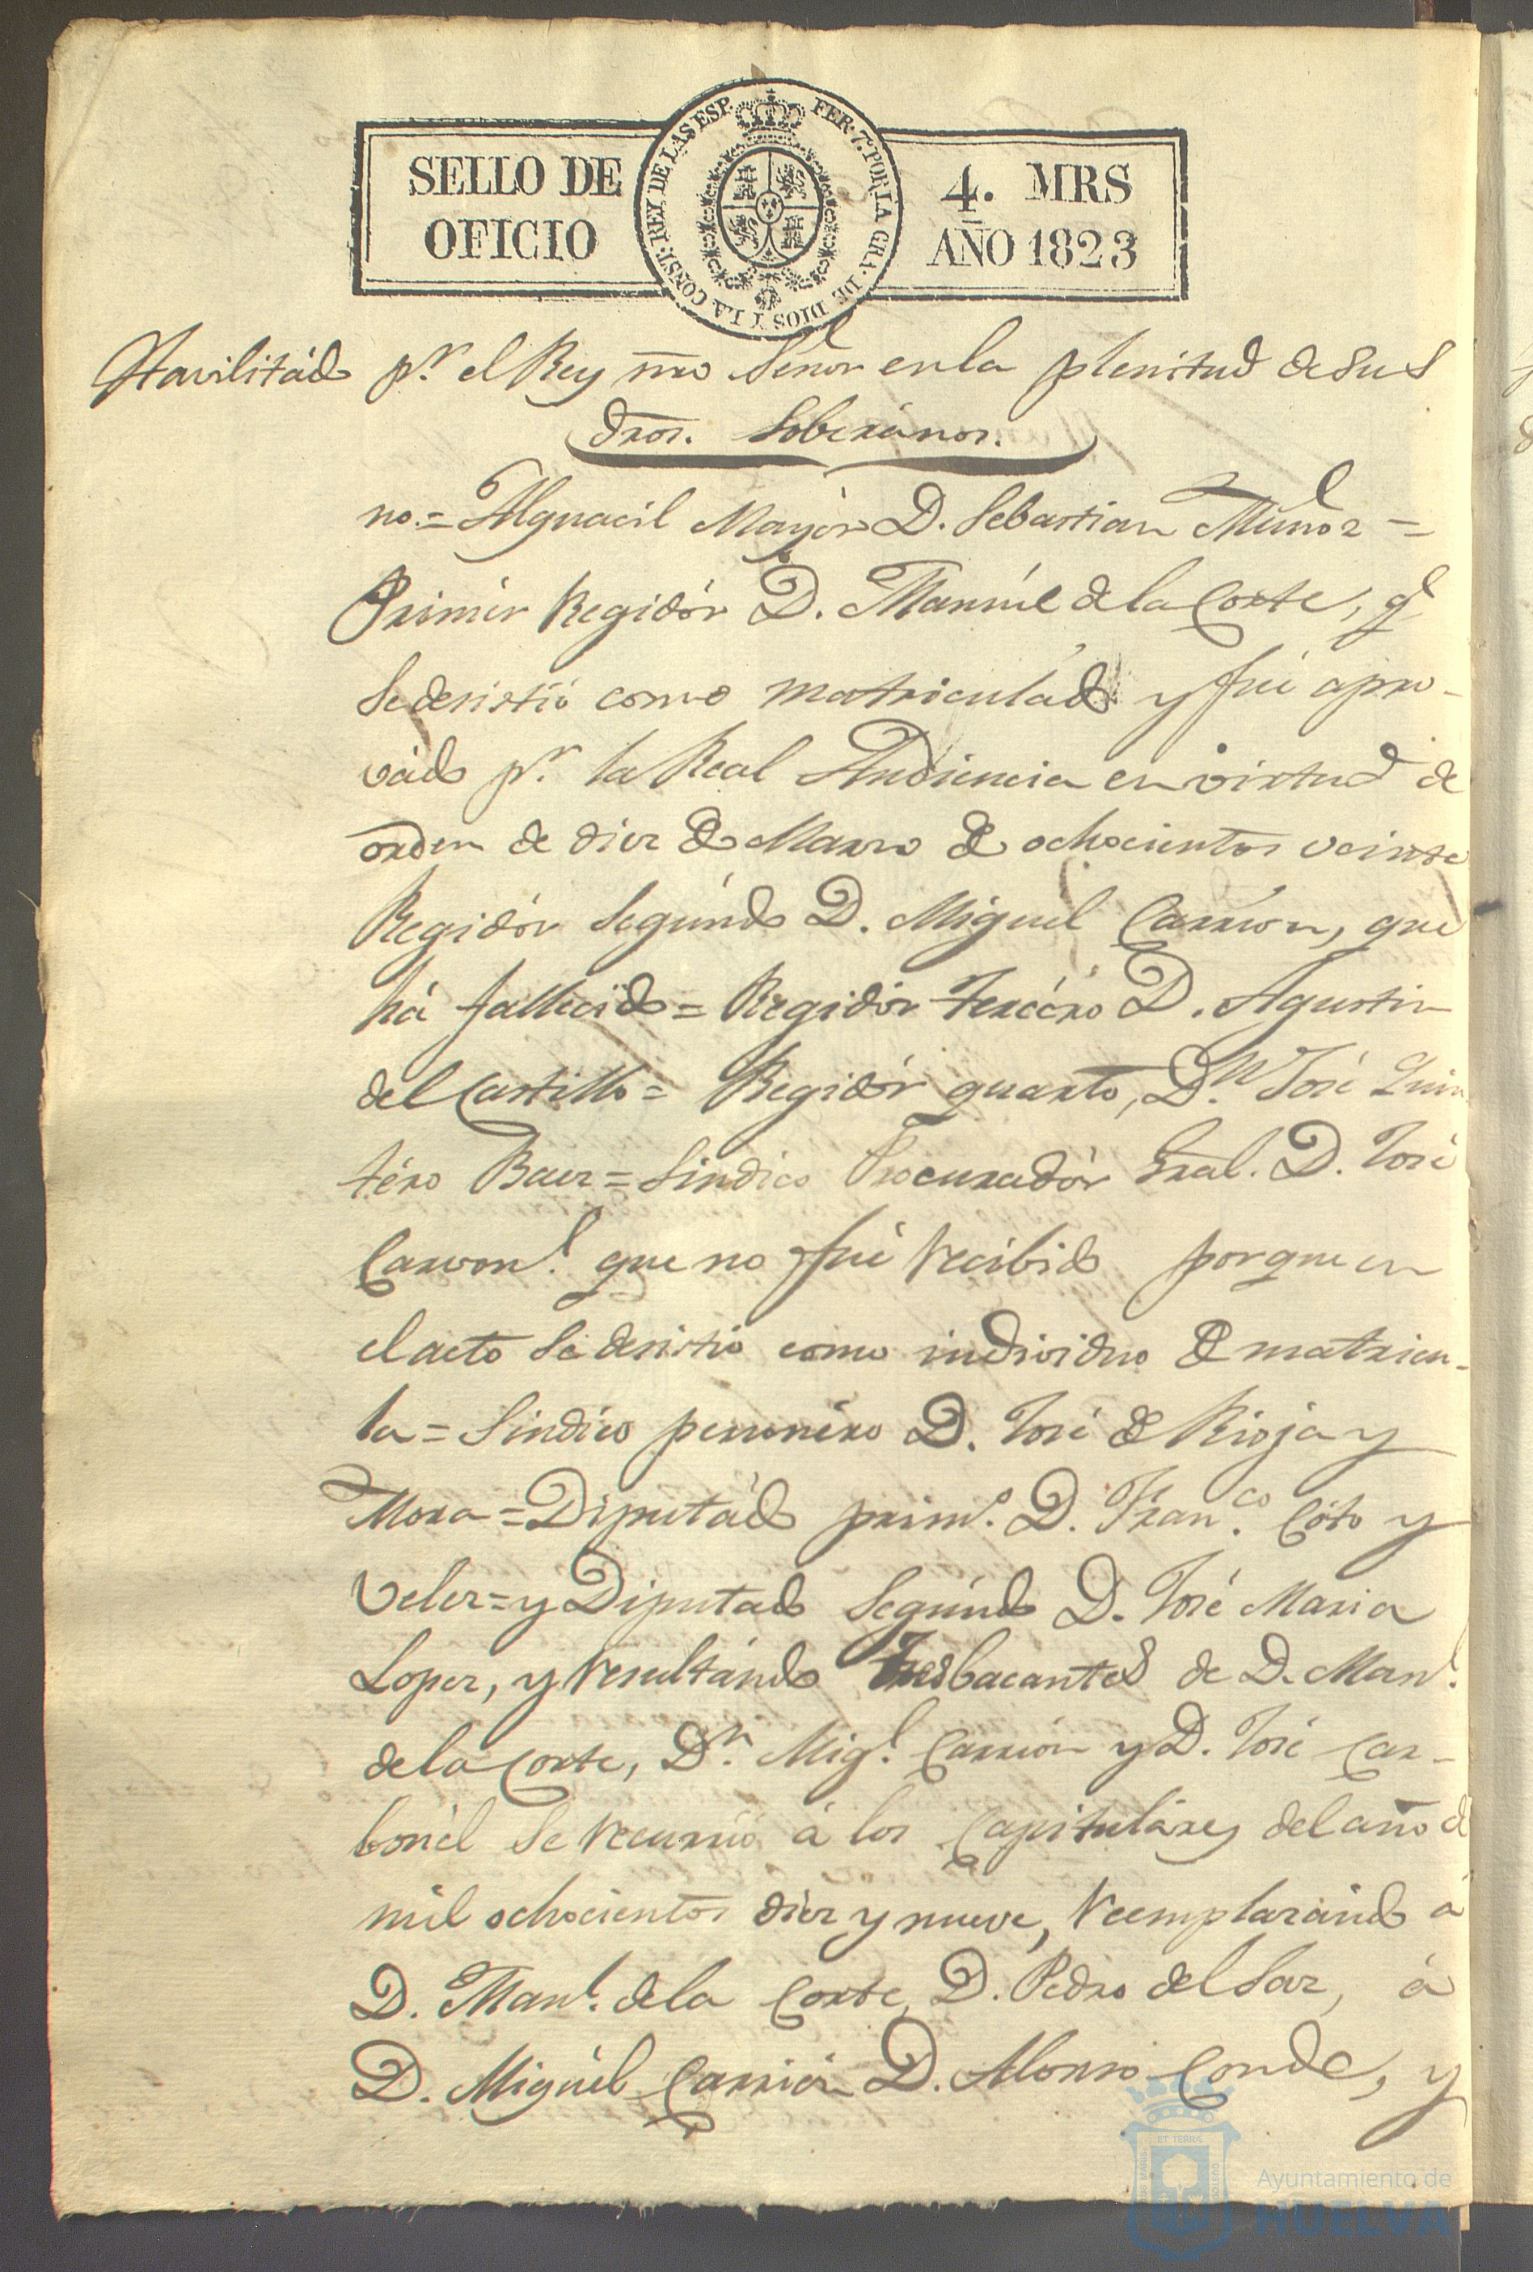 SELLO DE
OFICIO
FER. 7.º POR LA GRA. DE DIOS Y LA CONST. REY DE LAS ESP.
4. MRS
AÑO 1823
Havilitádo pr. el Rey nro Señor en la plenitud de sus
dros. Soberános.
no.= Alguacil Mayór D. Sebastian Muñoz =
Primér Regidór D. Manuél de la Corte, qe
se desistió como matriculádo y fué apro-
vádo pr. la Real Audiencia en virtud de
orden de diez de Marzo de ochocientos veinte
Regidór Segúndo D. Miguel Carrion, que
há fallecido = Regidór tercéro D. Agustin
del Castillo = Regidór quarto, Dn. José Quin
téro Baez = Sindico Procuradór Gral. D. José
Carvonl. que no fué recibido porque en
el acto se desistio como individuo de matricu-
la = Sindico personéro D. José de Rioja y
Mora = Diputádo primo. D. Franco. Cóto y
Velez = y Diputado Segúndo D. José Maria
Lopez, y resultándo tres bacantes de D. Manl.
de la Corte, Dn. Migl. Carrion y D. José Car-
bonél se recurrió á los Capituláres del año de
mil ochocientos diez y nueve, reemplazándo á
D. Manl. de la Corte, D. Pedro del Saz, á
D. Miguél Carrión D. Alonso Conde, y
Ayuntamiento de
HUELVA